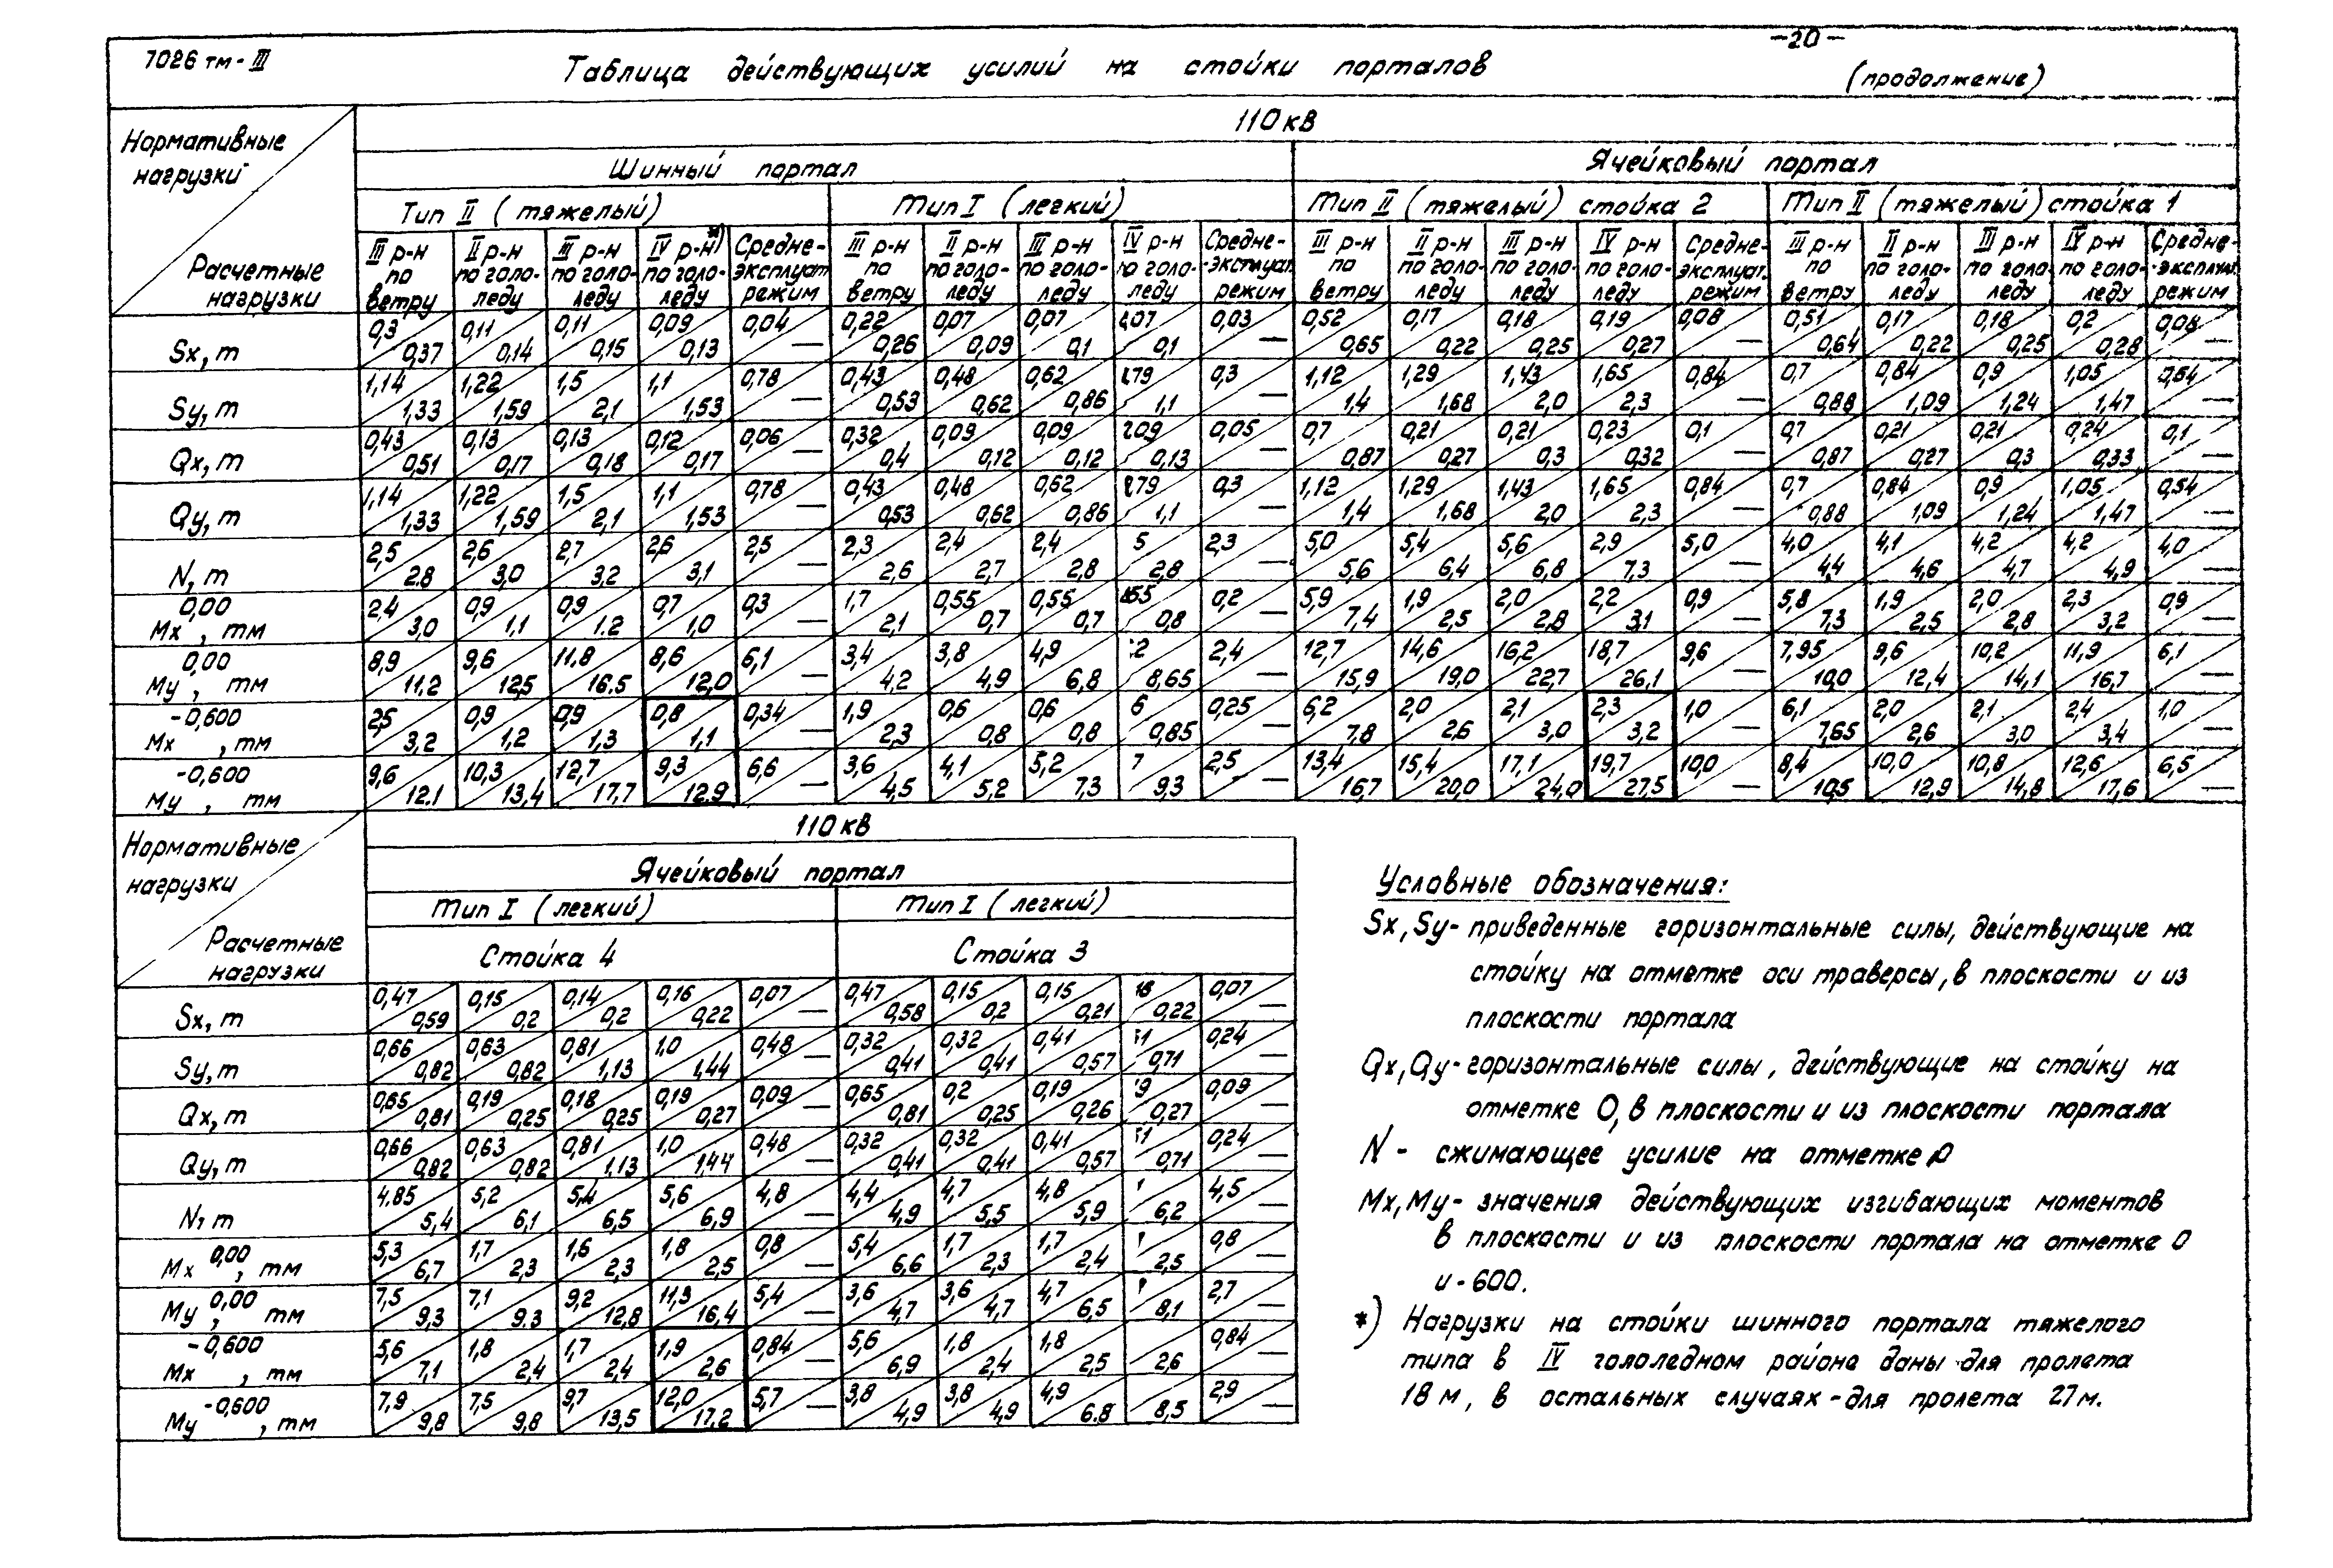 7026 тм-III
Таблица действующих усилий на стойки порталов
-20-
(продолжение)
Нормативные нагрузки
Расчетные нагрузки
110 кв
Шинный портал
Ячейковый портал
Тип II (тяжелый)
Тип I (легкий)
Тип II (тяжелый) стойка 2
Тип II (тяжелый) стойка 1
III р-н по ветру | II р-н по голо-леду | III р-н по голо-леду | IV р-н*) по голо-леду | Средне-эксплуат. режим | III р-н по ветру | II р-н по голо-леду | III р-н по голо-леду | IV р-н по голо-леду | Средне-эксплуат. режим | III р-н по ветру | II р-н по голо-леду | III р-н по голо-леду | IV р-н по голо-леду | Средне-эксплуат. режим | III р-н по ветру | II р-н по голо-леду | III р-н по голо-леду | IV р-н по голо-леду | Средне-эксплуат. режим
Sx, т | 0,3/0,37 | 0,11/0,14 | 0,11/0,15 | 0,09/0,13 | 0,04/— | 0,22/0,26 | 0,07/0,09 | 0,07/0,1 | ,07/0,1 | 0,03/— | 0,52/0,65 | 0,17/0,22 | 0,18/0,25 | 0,19/0,27 | 0,08/— | 0,51/0,64 | 0,17/0,22 | 0,18/0,25 | 0,2/0,28 | 0,08/—
Sy, т | 1,14/1,33 | 1,22/1,59 | 1,5/2,1 | 1,1/1,53 | 0,78/— | 0,43/0,53 | 0,48/0,62 | 0,62/0,86 | ,79/1,1 | 0,3/— | 1,12/1,4 | 1,29/1,68 | 1,43/2,0 | 1,65/2,3 | 0,84/— | 0,7/0,88 | 0,84/1,09 | 0,9/1,24 | 1,05/1,47 | 0,54/—
Qx, т | 0,43/0,51 | 0,13/0,17 | 0,13/0,18 | 0,12/0,17 | 0,06/— | 0,32/0,4 | 0,09/0,12 | 0,09/0,12 | ,09/0,13 | 0,05/— | 0,7/0,87 | 0,21/0,27 | 0,21/0,3 | 0,23/0,32 | 0,1/— | 0,7/0,87 | 0,21/0,27 | 0,21/0,3 | 0,24/0,33 | 0,1/—
Qy, т | 1,14/1,33 | 1,22/1,59 | 1,5/2,1 | 1,1/1,53 | 0,78/— | 0,43/0,53 | 0,48/0,62 | 0,62/0,86 | ,79/1,1 | 0,3/— | 1,12/1,4 | 1,29/1,68 | 1,43/2,0 | 1,65/2,3 | 0,84/— | 0,7/0,88 | 0,84/1,09 | 0,9/1,24 | 1,05/1,47 | 0,54/—
N, т | 2,5/2,8 | 2,6/3,0 | 2,7/3,2 | 2,6/3,1 | 2,5/— | 2,3/2,6 | 2,4/2,7 | 2,4/2,8 | 5/2,8 | 2,3/— | 5,0/5,6 | 5,4/6,4 | 5,6/6,8 | 2,9/7,3 | 5,0/— | 4,0/4,4 | 4,1/4,6 | 4,2/4,7 | 4,2/4,9 | 4,0/—
Mx 0,00, тм | 2,4/3,0 | 0,9/1,1 | 0,9/1,2 | 0,7/1,0 | 0,3/— | 1,7/2,1 | 0,55/0,7 | 0,55/0,7 | ,55/0,8 | 0,2/— | 5,9/7,4 | 1,9/2,5 | 2,0/2,8 | 2,2/3,1 | 0,9/— | 5,8/7,3 | 1,9/2,5 | 2,0/2,8 | 2,3/3,2 | 0,9/—
My 0,00, тм | 8,9/11,2 | 9,6/12,5 | 11,8/16,5 | 8,6/12,0 | 6,1/— | 3,4/4,2 | 3,8/4,9 | 4,9/6,8 | 2/8,65 | 2,4/— | 12,7/15,9 | 14,6/19,0 | 16,2/22,7 | 18,7/26,1 | 9,6/— | 7,95/10,0 | 9,6/12,4 | 10,2/14,1 | 11,9/16,7 | 6,1/—
Mx -0,600, тм | 2,5/3,2 | 0,9/1,2 | 0,9/1,3 | 0,8/1,1 | 0,34/— | 1,9/2,3 | 0,6/0,8 | 0,6/0,8 | 6/0,85 | 0,25/— | 6,2/7,8 | 2,0/2,6 | 2,1/3,0 | 2,3/3,2 | 1,0/— | 6,1/7,65 | 2,0/2,6 | 2,1/3,0 | 2,4/3,4 | 1,0/—
My -0,600, тм | 9,6/12,1 | 10,3/13,4 | 12,7/17,7 | 9,3/12,9 | 6,6/— | 3,6/4,5 | 4,1/5,2 | 5,2/7,3 | 7/9,3 | 2,5/— | 13,4/16,7 | 15,4/20,0 | 17,1/24,0 | 19,7/27,5 | 10,0/— | 8,4/10,5 | 10,0/12,9 | 10,8/14,8 | 12,6/17,6 | 6,5/—
Нормативные нагрузки
Расчетные нагрузки
110 кв
Ячейковый портал
Тип I (легкий)
Тип I (легкий)
Стойка 4
Стойка 3
Sx, т | 0,47/0,59 | 0,15/0,2 | 0,14/0,2 | 0,16/0,22 | 0,07/— | 0,47/0,58 | 0,15/0,2 | 0,15/0,21 | 0,22 | 0,07/—
Sy, т | 0,66/0,82 | 0,63/0,82 | 0,81/1,13 | 1,0/1,44 | 0,48/— | 0,32/0,41 | 0,32/0,41 | 0,41/0,57 | 0,71 | 0,24/—
Qx, т | 0,65/0,81 | 0,19/0,25 | 0,18/0,25 | 0,19/0,27 | 0,09/— | 0,65/0,81 | 0,2/0,25 | 0,19/0,26 | 9/0,27 | 0,09/—
Qy, т | 0,66/0,82 | 0,63/0,82 | 0,81/1,13 | 1,0/1,44 | 0,48/— | 0,32/0,41 | 0,32/0,41 | 0,41/0,57 | 0,71 | 0,24/—
N, т | 4,85/5,4 | 5,2/6,1 | 5,4/6,5 | 5,6/6,9 | 4,8/— | 4,4/4,9 | 4,7/5,5 | 4,8/5,9 | 6,2 | 4,5/—
Mx 0,00, тм | 5,3/6,7 | 1,7/2,3 | 1,6/2,3 | 1,8/2,5 | 0,8/— | 5,4/6,6 | 1,7/2,3 | 1,7/2,4 | 2,5 | 0,8/—
My 0,00, тм | 7,5/9,3 | 7,1/9,3 | 9,2/12,8 | 11,3/16,4 | 5,4/— | 3,6/4,7 | 3,6/4,7 | 4,7/6,5 | 8,1 | 2,7/—
Mx -0,600, тм | 5,6/7,1 | 1,8/2,4 | 1,7/2,4 | 1,9/2,6 | 0,84/— | 5,6/6,9 | 1,8/2,4 | 1,8/2,5 | 2,6 | 0,84/—
My -0,600, тм | 7,9/9,8 | 7,5/9,8 | 9,7/13,5 | 12,0/17,2 | 5,7/— | 3,8/4,9 | 3,8/4,9 | 4,9/6,8 | 8,5 | 2,9/—
Условные обозначения:
Sx, Sy- приведенные горизонтальные силы, действующие на
стойку на отметке оси траверсы, в плоскости и из
плоскости портала
Qx, Qy- горизонтальные силы, действующие на стойку на
отметке 0, в плоскости и из плоскости портала
N - сжимающее усилие на отметке 0
Mx, My- значения действующих изгибающих моментов
в плоскости и из плоскости портала на отметке 0
и - 600.
*) Нагрузки на стойки шинного портала тяжелого
типа в IV гололедном районе даны для пролета
18 м, в остальных случаях - для пролета 27 м.